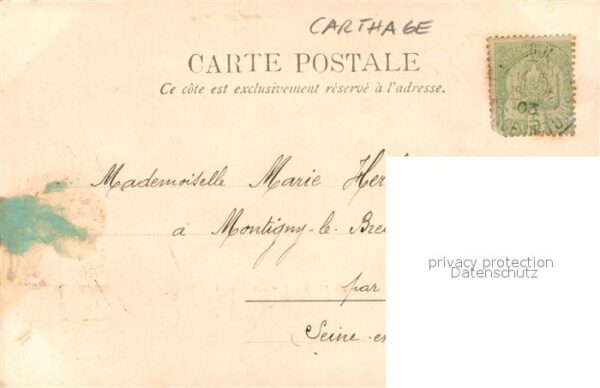 CARTHAGE
CARTE POSTALE
Ce côté est exclusivement réservé à l'adresse.
03
Mademoiselle Marie Her
à Montigny-le-Bre
privacy protection
Datenschutz
par
Seine-et